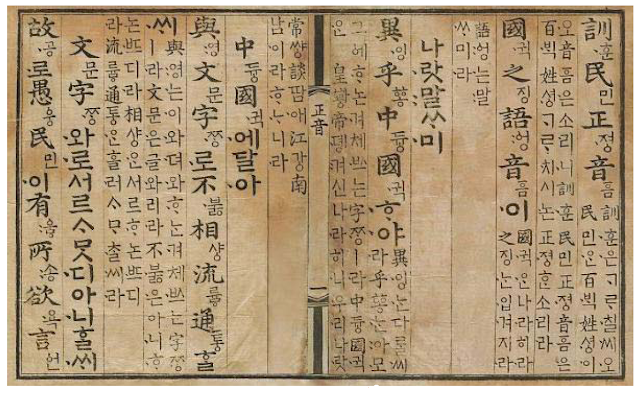 訓훈民민正졍音ᅙᅳᆷ 訓훈은ᄀᆞᄅᆞ칠씨오 民민은百ᄇᆡᆨ姓셩이
오音ᅙᅳᆷ은소리니訓훈民민正졍音ᅙᅳᆷ은
百ᄇᆡᆨ姓셩ᄀᆞᄅᆞ치시논正졍ᄒᆞᆫ소리라
國귁之징語ᅌᅥᆼ音ᅙᅳᆷ이 國귁ᄋᆞᆫ나라히라 之징ᄂᆞᆫ입겨지라
語ᅌᅥᆼ는말
ᄊᆞ미라
나랏말ᄊᆞ미
異잉乎ᅘᅩᆼ中듀ᇰ國귁ᄒᆞ야 異잉ᄂᆞᆫ다ᄅᆞᆯ씨라 乎ᅘᅩᆼᄂᆞᆫ아모
그ᅌᅦᄒᆞ논겨체ᄡᅳ는字ᄍᆞᆼㅣ라中듀ᇰ國귁
은皇ᅘᅪᇰ帝뎽겨신나라히니우리나랏
正音 一
常쌰ᇰ談땀애江가ᇰ南
남이라ᄒᆞᄂᆞ니라
中듀ᇰ國귁에달아
與영文문字ᄍᆞᆼ로不부ᇙ相샤ᇰ流류ᇢ通토ᇰᄒᆞᆯ
ᄊᆡ 與영는이와뎌와ᄒᆞ논겨체ᄡᅳ는字ᄍᆞᆼ
ㅣ라文문은글와리라不부ᇙ은아니ᄒᆞ
논ᄠᅳ디라相샤ᇰᄋᆞᆫ서르ᄒᆞ논ᄠᅳ디
라流류ᇢ通토ᇰᄋᆞᆫ흘러ᄉᆞᄆᆞᄎᆞᆯ씨라
文문字ᄍᆞᆼ와로서르ᄉᆞᄆᆞᆺ디아니ᄒᆞᆯᄊᆡ
故공로愚ᅌᅮᆼ民민이有우ᇢ所송欲욕言ᅌᅥᆫ